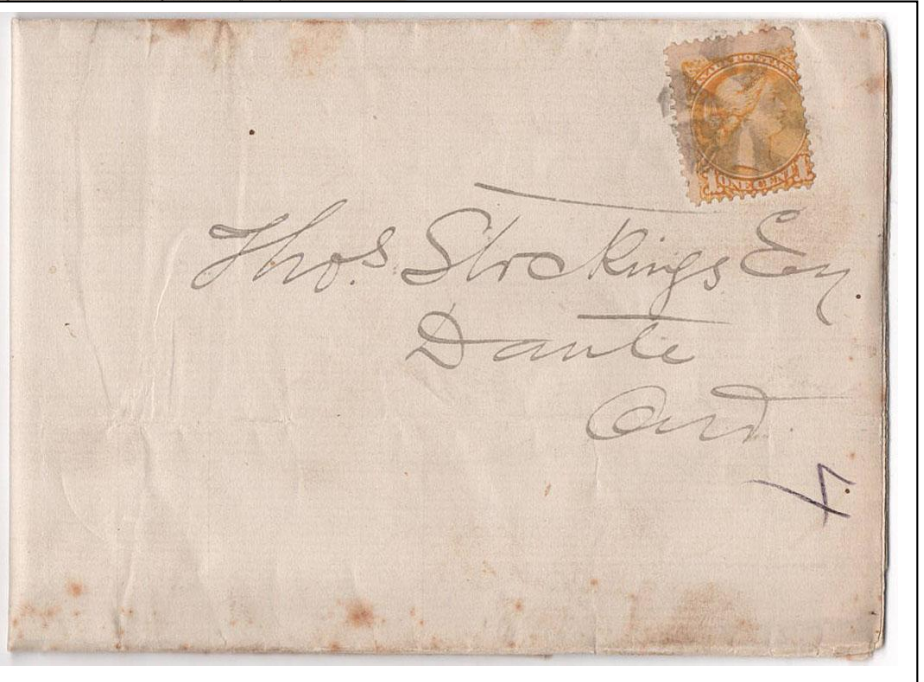 CANADA POSTAGE
1 ONE CENT 1
Thos. Stockings Esq.
Dante
Ont.